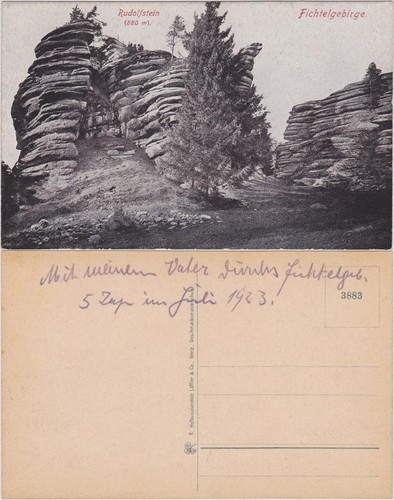 Rudolfstein
(880 m).
Fichtelgebirge.
Mit meinem Vater durchs Fichtelgeb.
5 Tage im Juli 1923.
3883